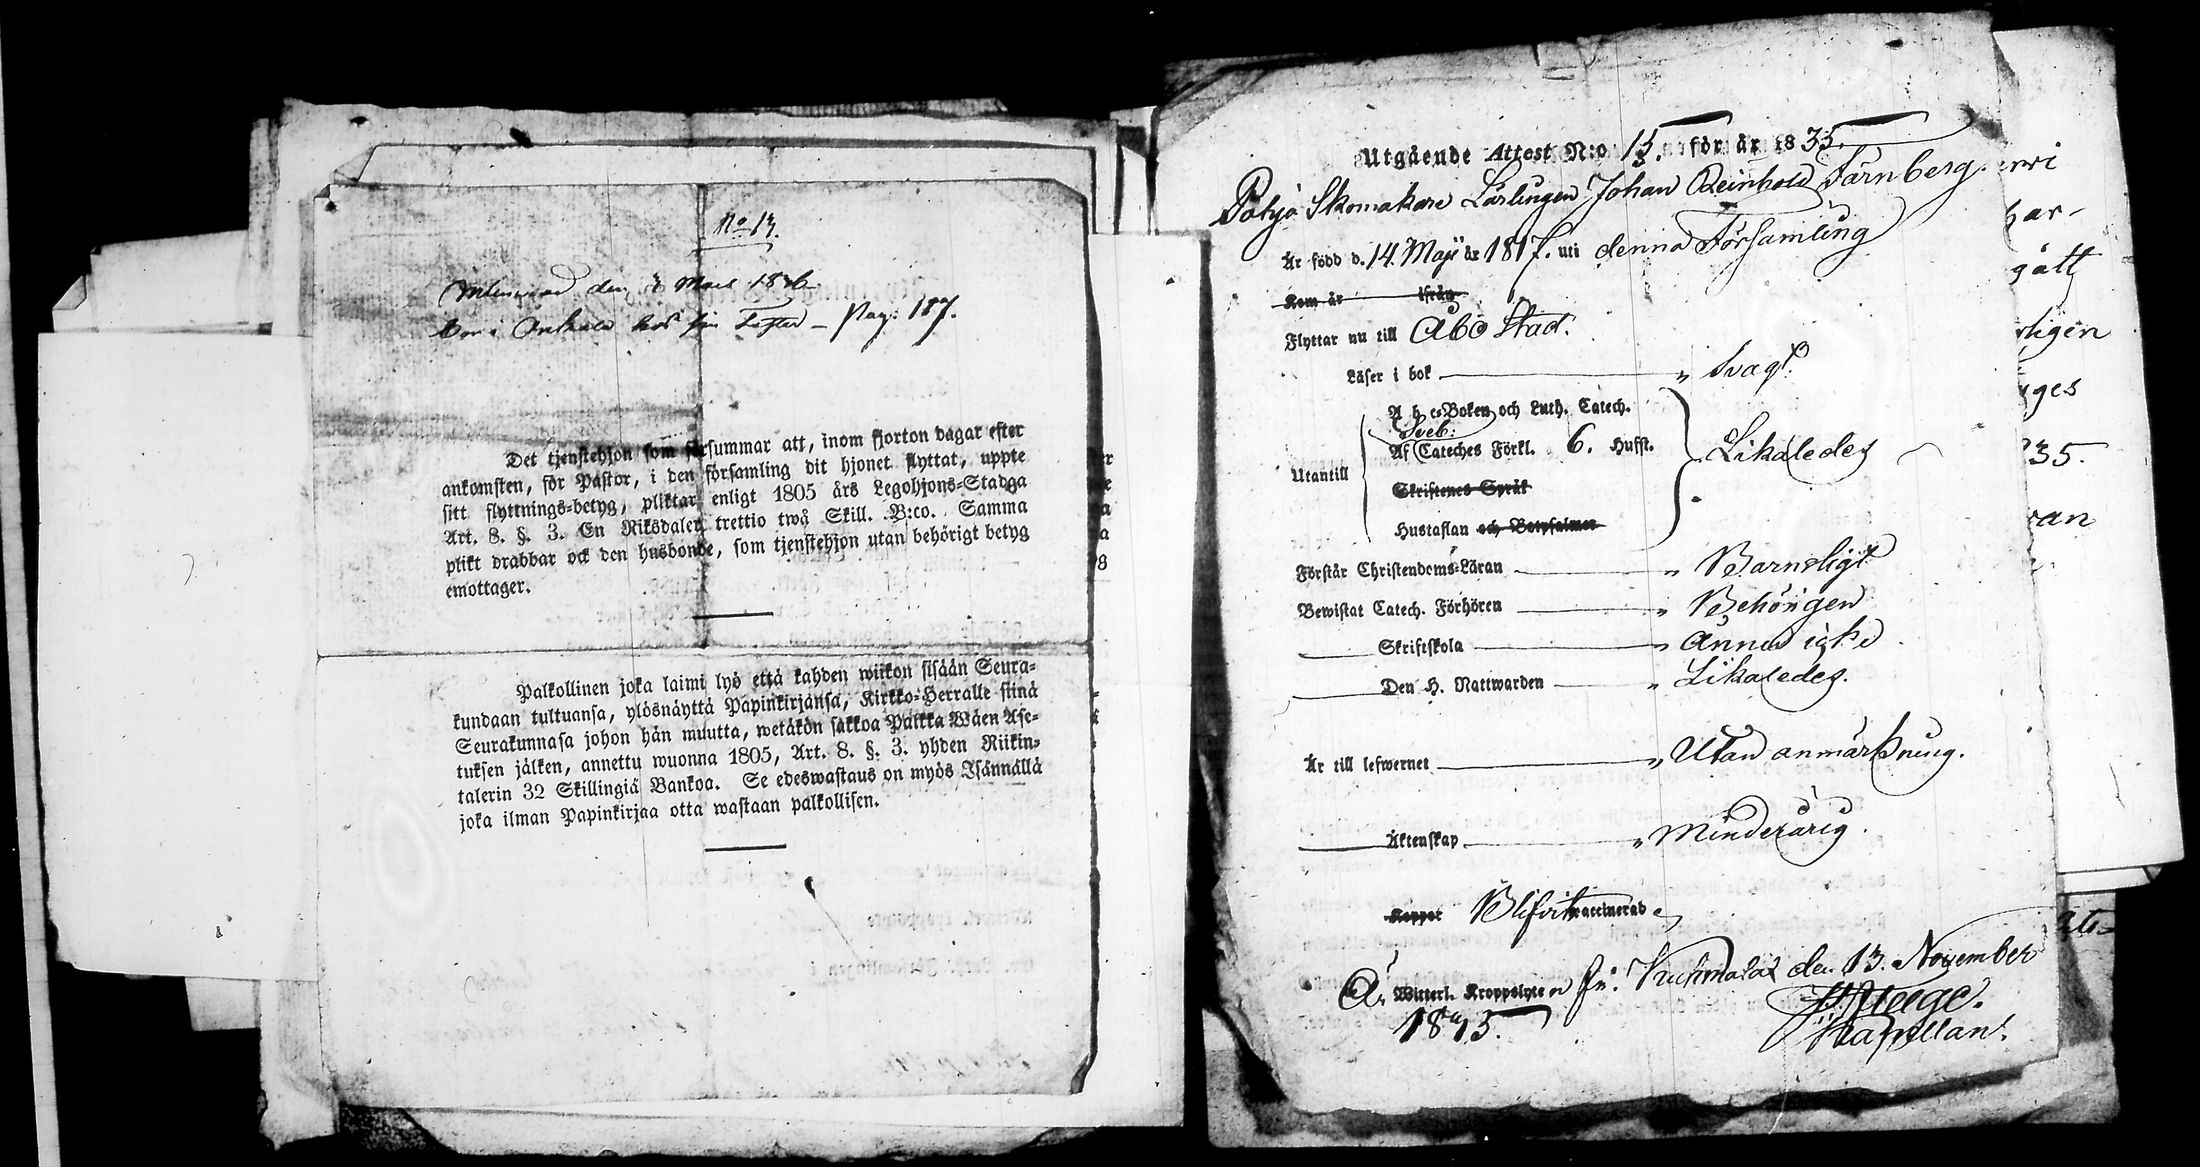 No 13.
den 8 Mars 1836
Bor i hos sin - Pag. 187.
Det tjenstehjon som försummar att, inom fjorton dagar efter
ankomsten, för Pastor, i den församling dit hjonet flyttat, uppte
sitt flyttnings-betyg, pliktar enligt 1805 års Legohjons-Stadga
Art. 8. §. 3. En Riksdaler trettio twå Skill. B:co. Samma
plikt drabbar ock den husbonde, som tjenstehjon utan behörigt betyg
emottager.
Palkollinen joka laimi lyö että kahden wiikon sisään Seura-
kundaan tultuansa, ylösnäyttä Papinkirjänsä, Kirkko-Herralle siinä
Seurakunnasa johon hän muutta, wetäkön sakkoa Palkka Wäen Ase-
tuksen jälken, annettu wuonna 1805, Art. 8. §. 3. yhden Riikin-
talerin 32 Skillingiä Bankoa. Se edeswastaus on myös Isännällä
joka ilman Papinkirjaa otta wastaan palkollisen.
Utgående Attest N:o 15. för år 1835.
Skomakare Lärlingen Johan Reinhold Färnberg.
Är född d. 14. Maji år 1817. uti denna Församling
Kom år ifrån
Flyttar nu till Åbo Stad.
Läser i bok " Svagt
A b c-Boken och Luth. Catech.
Sveb:
Af Cateches Förkl. 6. Hufst.
Utantill
Likaledes
Skriftenes Språk
Hustaflan och Botpsalmer
Förstår Christendoms-Läran " Barnsligt
Bewistat Catech. Förhören " Behörigen
Skriftskola " Ännu icke
Den H. Nattwarden " Likaledes.
Är till lefwernet " Utan anmärkning.
Äktenskap " Minderårig.
Koppor Blifvit vaccinerad
Är Witterl. Kroppslyte den 13. November
1835.
Kapellan.